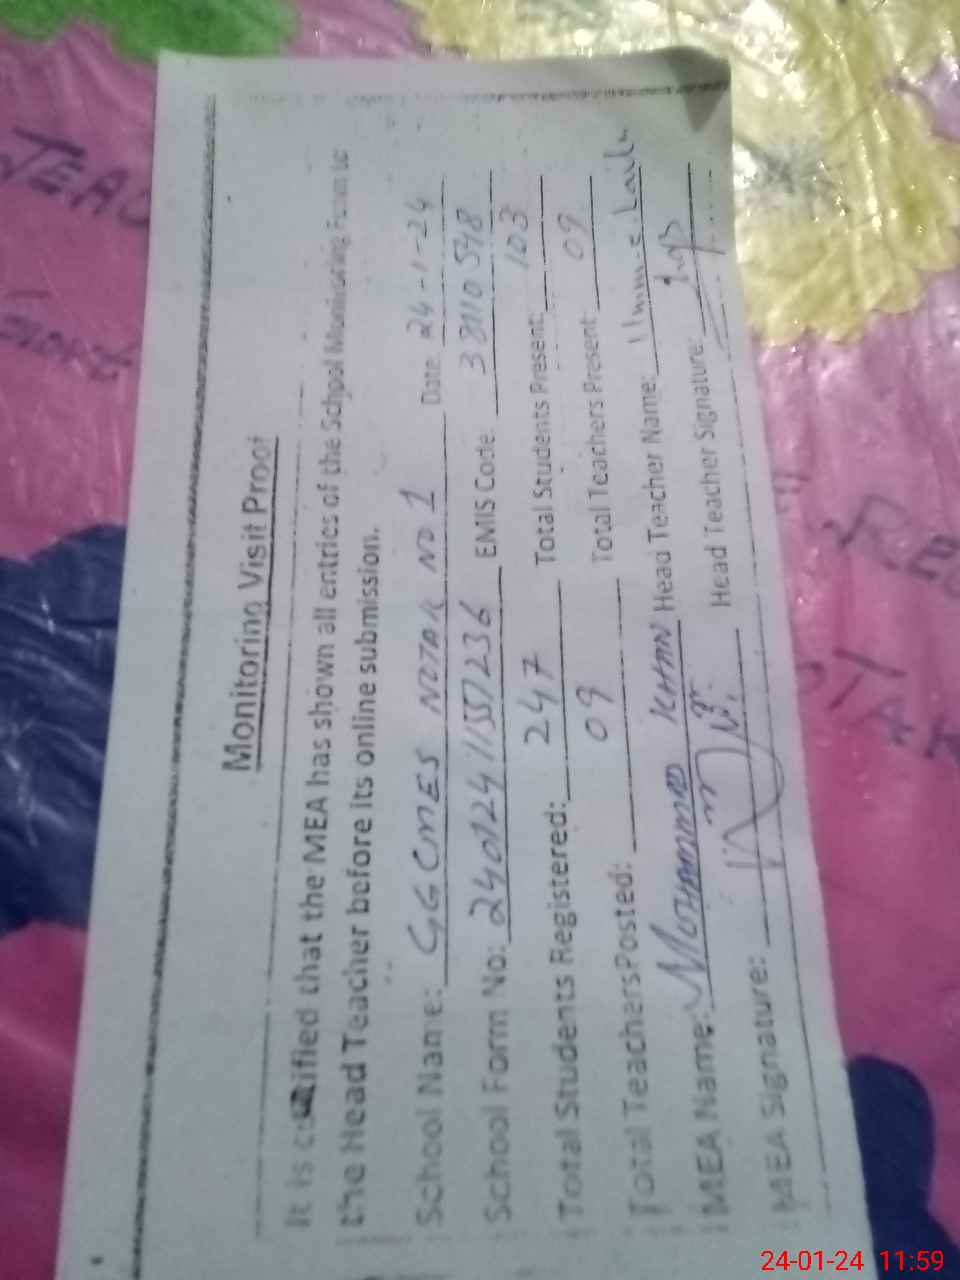 Monitoring Visit Proof
It is certified that the MEA has shown all entries of the School Monitoring Form to
the Head Teacher before its online submission.
School Name: GGCMES NOTAK NO 1 Date: 24-1-24
School Form No: 2401241157236 EMIS Code 38110548
Total Students Registered: 247 Total Students Present: 103
Total Teachers Posted: 09 Total Teachers Present: 09
MEA Name: MOHAMMAD KHAN Head Teacher Name: Umm-e-Laila
MEA Signature: Head Teacher Signature:
24-01-24 11:59